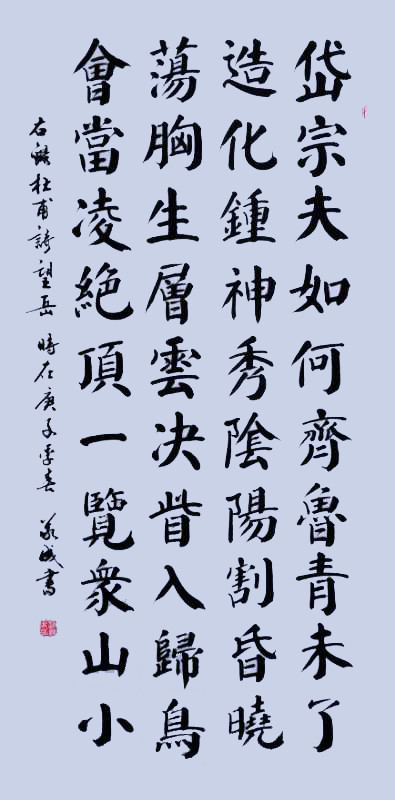 岱宗夫如何齊魯青未了
造化鍾神秀陰陽割昏曉
蕩胸生層雲决眥入歸鳥
會當凌絕頂一覽衆山小
右錄杜甫詩望岳 時在庚子季春 書